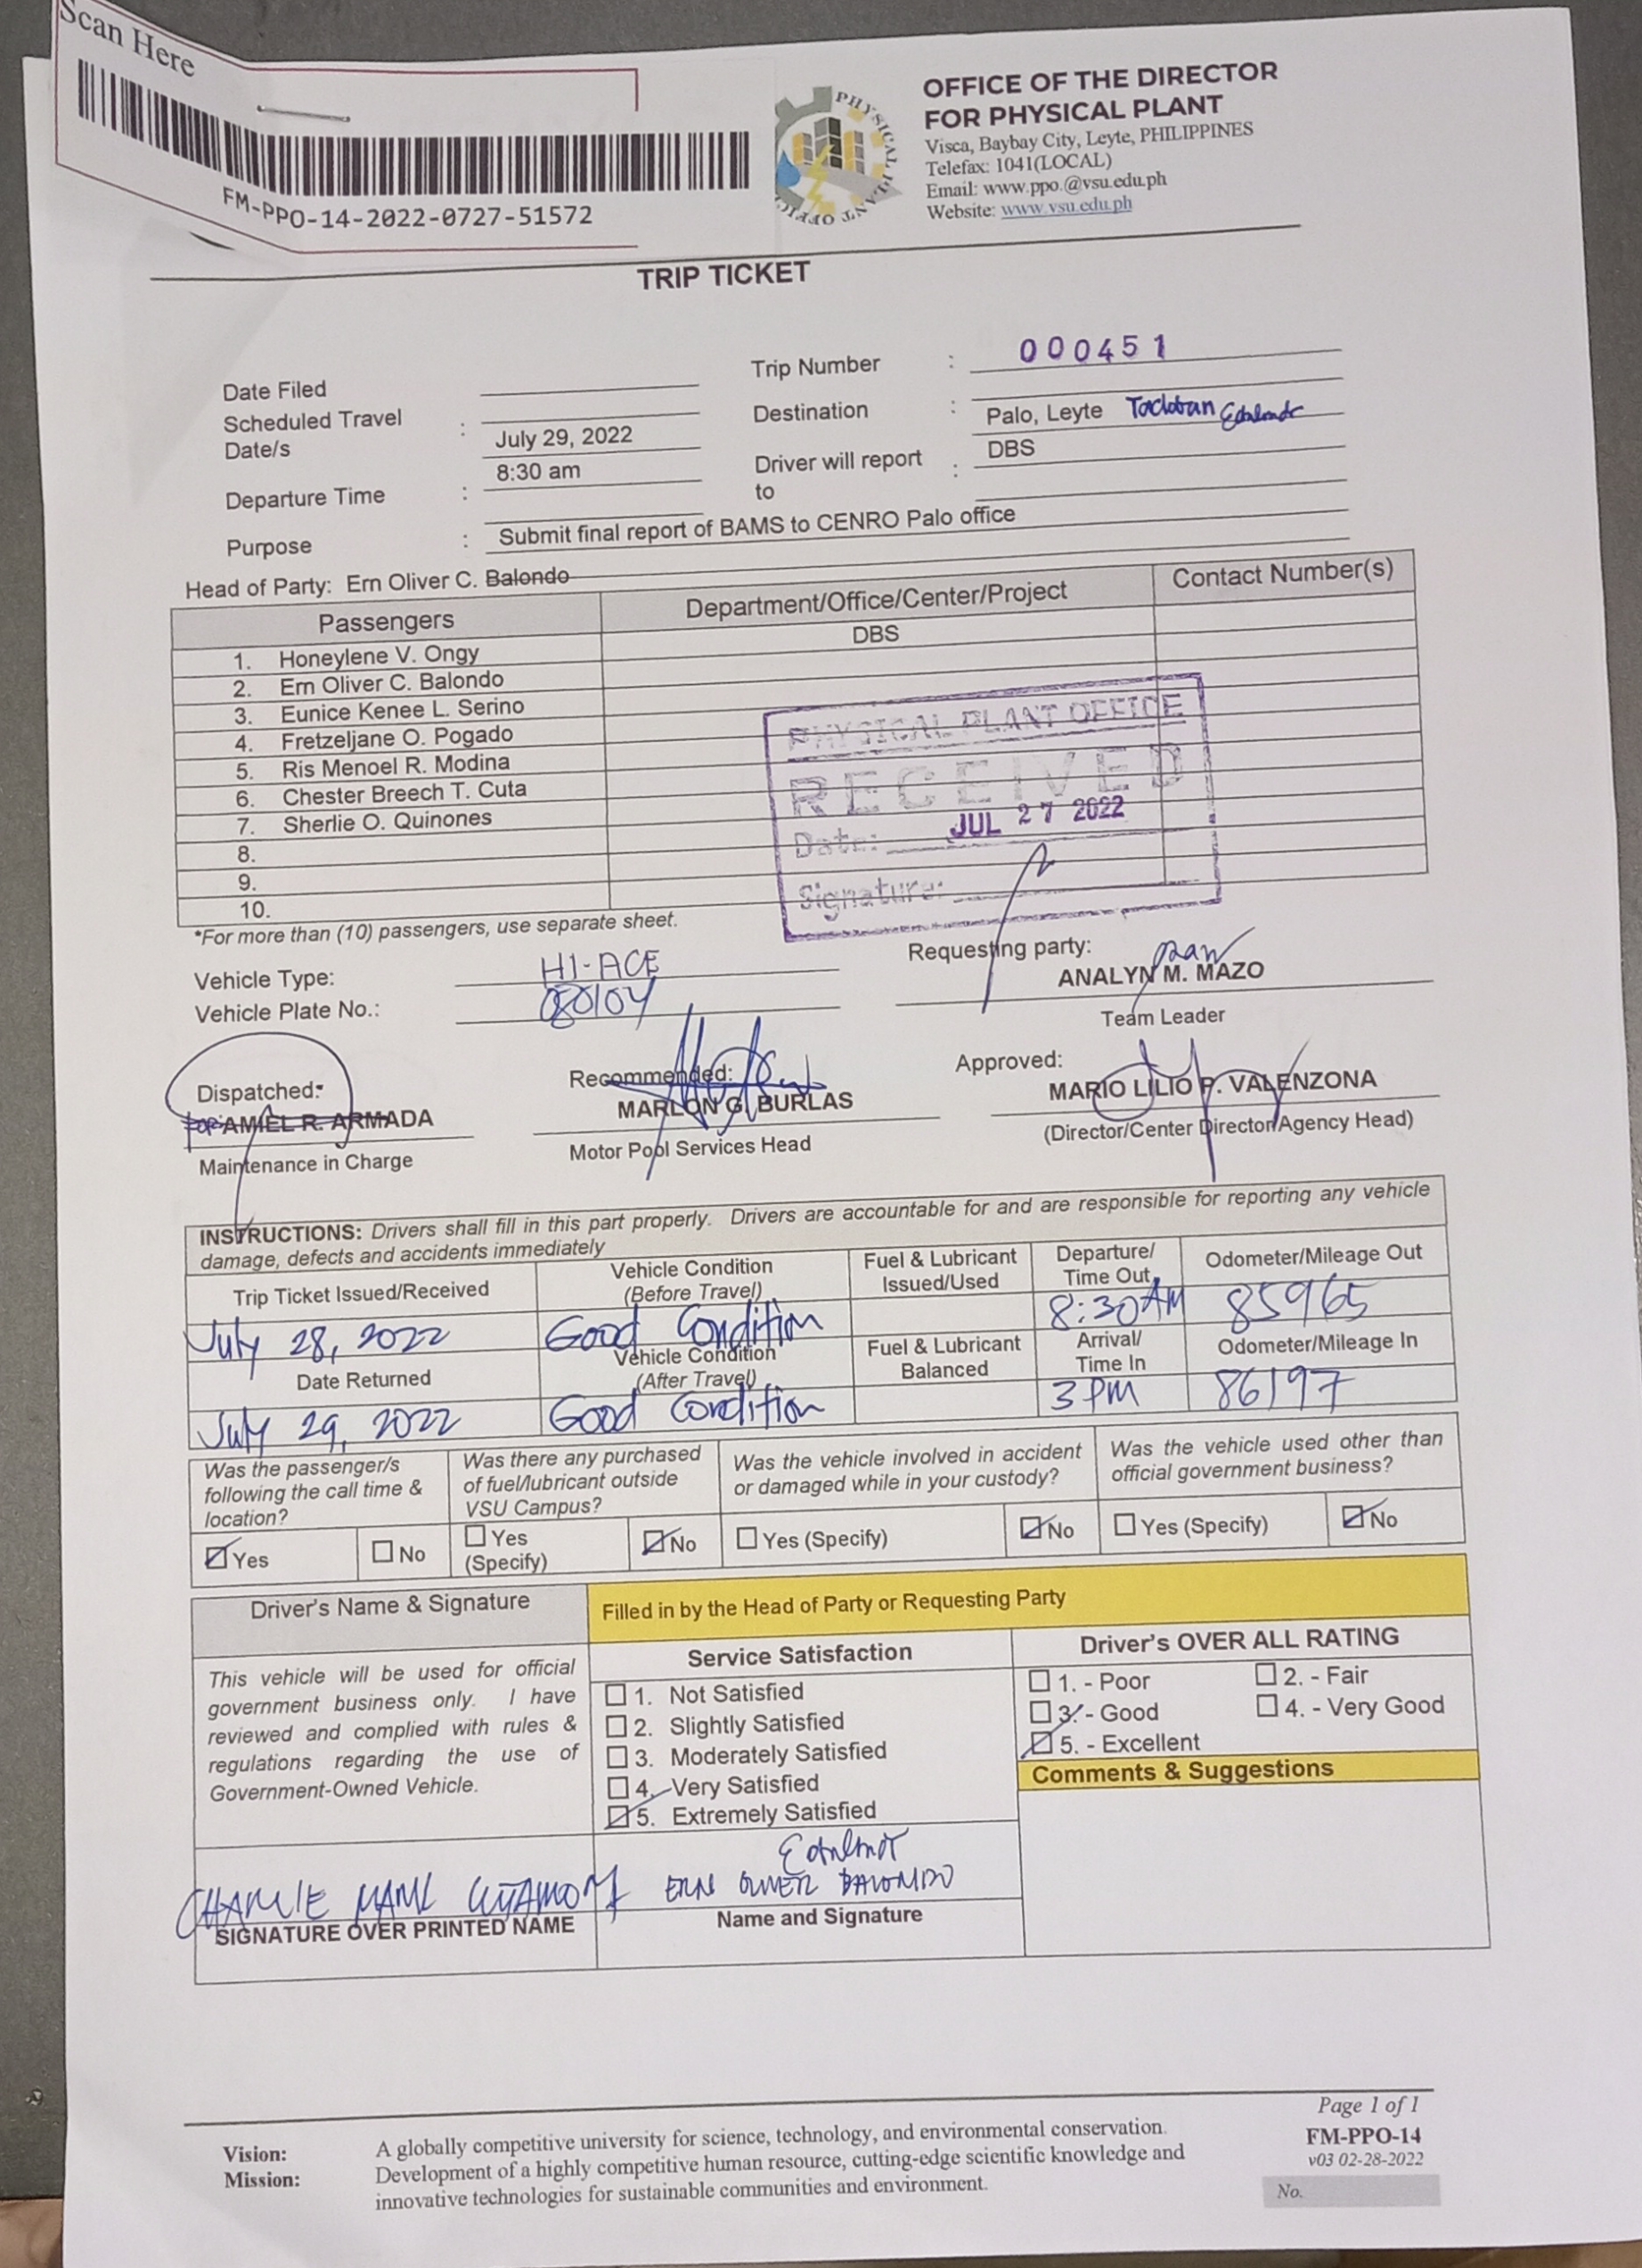 Scan Here
FM-PPO-14-2022-0727-51572
PHYSICAL PLANT OFFICE
OFFICE OF THE DIRECTOR
FOR PHYSICAL PLANT
Visca, Baybay City, Leyte, PHILIPPINES
Telefax: 1041(LOCAL)
Email: www.ppo.@vsu.edu.ph
Website: www.vsu.edu.ph
TRIP TICKET
Trip Number : 000451
Date Filed
Scheduled Travel Date/s : July 29, 2022
Destination : Palo, Leyte Tacloban
Departure Time : 8:30 am
Driver will report to : DBS
Purpose : Submit final report of BAMS to CENRO Palo office
Head of Party: Ern Oliver C. Balondo
Passengers Department/Office/Center/Project Contact Number(s)
1. Honeylene V. Ongy DBS
2. Ern Oliver C. Balondo
3. Eunice Kenee L. Serino
4. Fretzeljane O. Pogado
5. Ris Menoel R. Modina
6. Chester Breech T. Cuta
7. Sherlie O. Quinones
8.
9.
10.
PHYSICAL PLANT OFFICE
RECEIVED
Date: JUL 27 2022
Signature:
*For more than (10) passengers, use separate sheet.
Vehicle Type: HI-ACE
Vehicle Plate No.:
Requesting party:
ANALYN M. MAZO
Team Leader
Dispatched:
for: AMIEL R. ARMADA
Maintenance in Charge
Recommended:
MARLON G. BURLAS
Motor Pool Services Head
Approved:
MARIO LILIO P. VALENZONA
(Director/Center Director/Agency Head)
INSTRUCTIONS: Drivers shall fill in this part properly. Drivers are accountable for and are responsible for reporting any vehicle
damage, defects and accidents immediately
Trip Ticket Issued/Received
July 28, 2022
Vehicle Condition
(Before Travel)
Good Condition
Fuel & Lubricant
Issued/Used
Departure/
Time Out
8:30AM
Odometer/Mileage Out
85965
Date Returned
July 29, 2022
Vehicle Condition
(After Travel)
Good Condition
Fuel & Lubricant
Balanced
Arrival/
Time In
3 PM
Odometer/Mileage In
86197
Was the passenger/s
following the call time &
location?
Yes No
Was there any purchased
of fuel/lubricant outside
VSU Campus?
Yes
(Specify)
No
Was the vehicle involved in accident
or damaged while in your custody?
Yes (Specify) No
Was the vehicle used other than
official government business?
Yes (Specify) No
Driver's Name & Signature
This vehicle will be used for official
government business only. I have
reviewed and complied with rules &
regulations regarding the use of
Government-Owned Vehicle.
SIGNATURE OVER PRINTED NAME
Filled in by the Head of Party or Requesting Party
Service Satisfaction
1. Not Satisfied
2. Slightly Satisfied
3. Moderately Satisfied
4. Very Satisfied
5. Extremely Satisfied
ERN OLIVER BALONDO
Name and Signature
Driver's OVER ALL RATING
1. - Poor 2. - Fair
3. - Good 4. - Very Good
5. - Excellent
Comments & Suggestions
Page 1 of 1
Vision: A globally competitive university for science, technology, and environmental conservation.
Mission: Development of a highly competitive human resource, cutting-edge scientific knowledge and
innovative technologies for sustainable communities and environment.
FM-PPO-14
v03 02-28-2022
No.